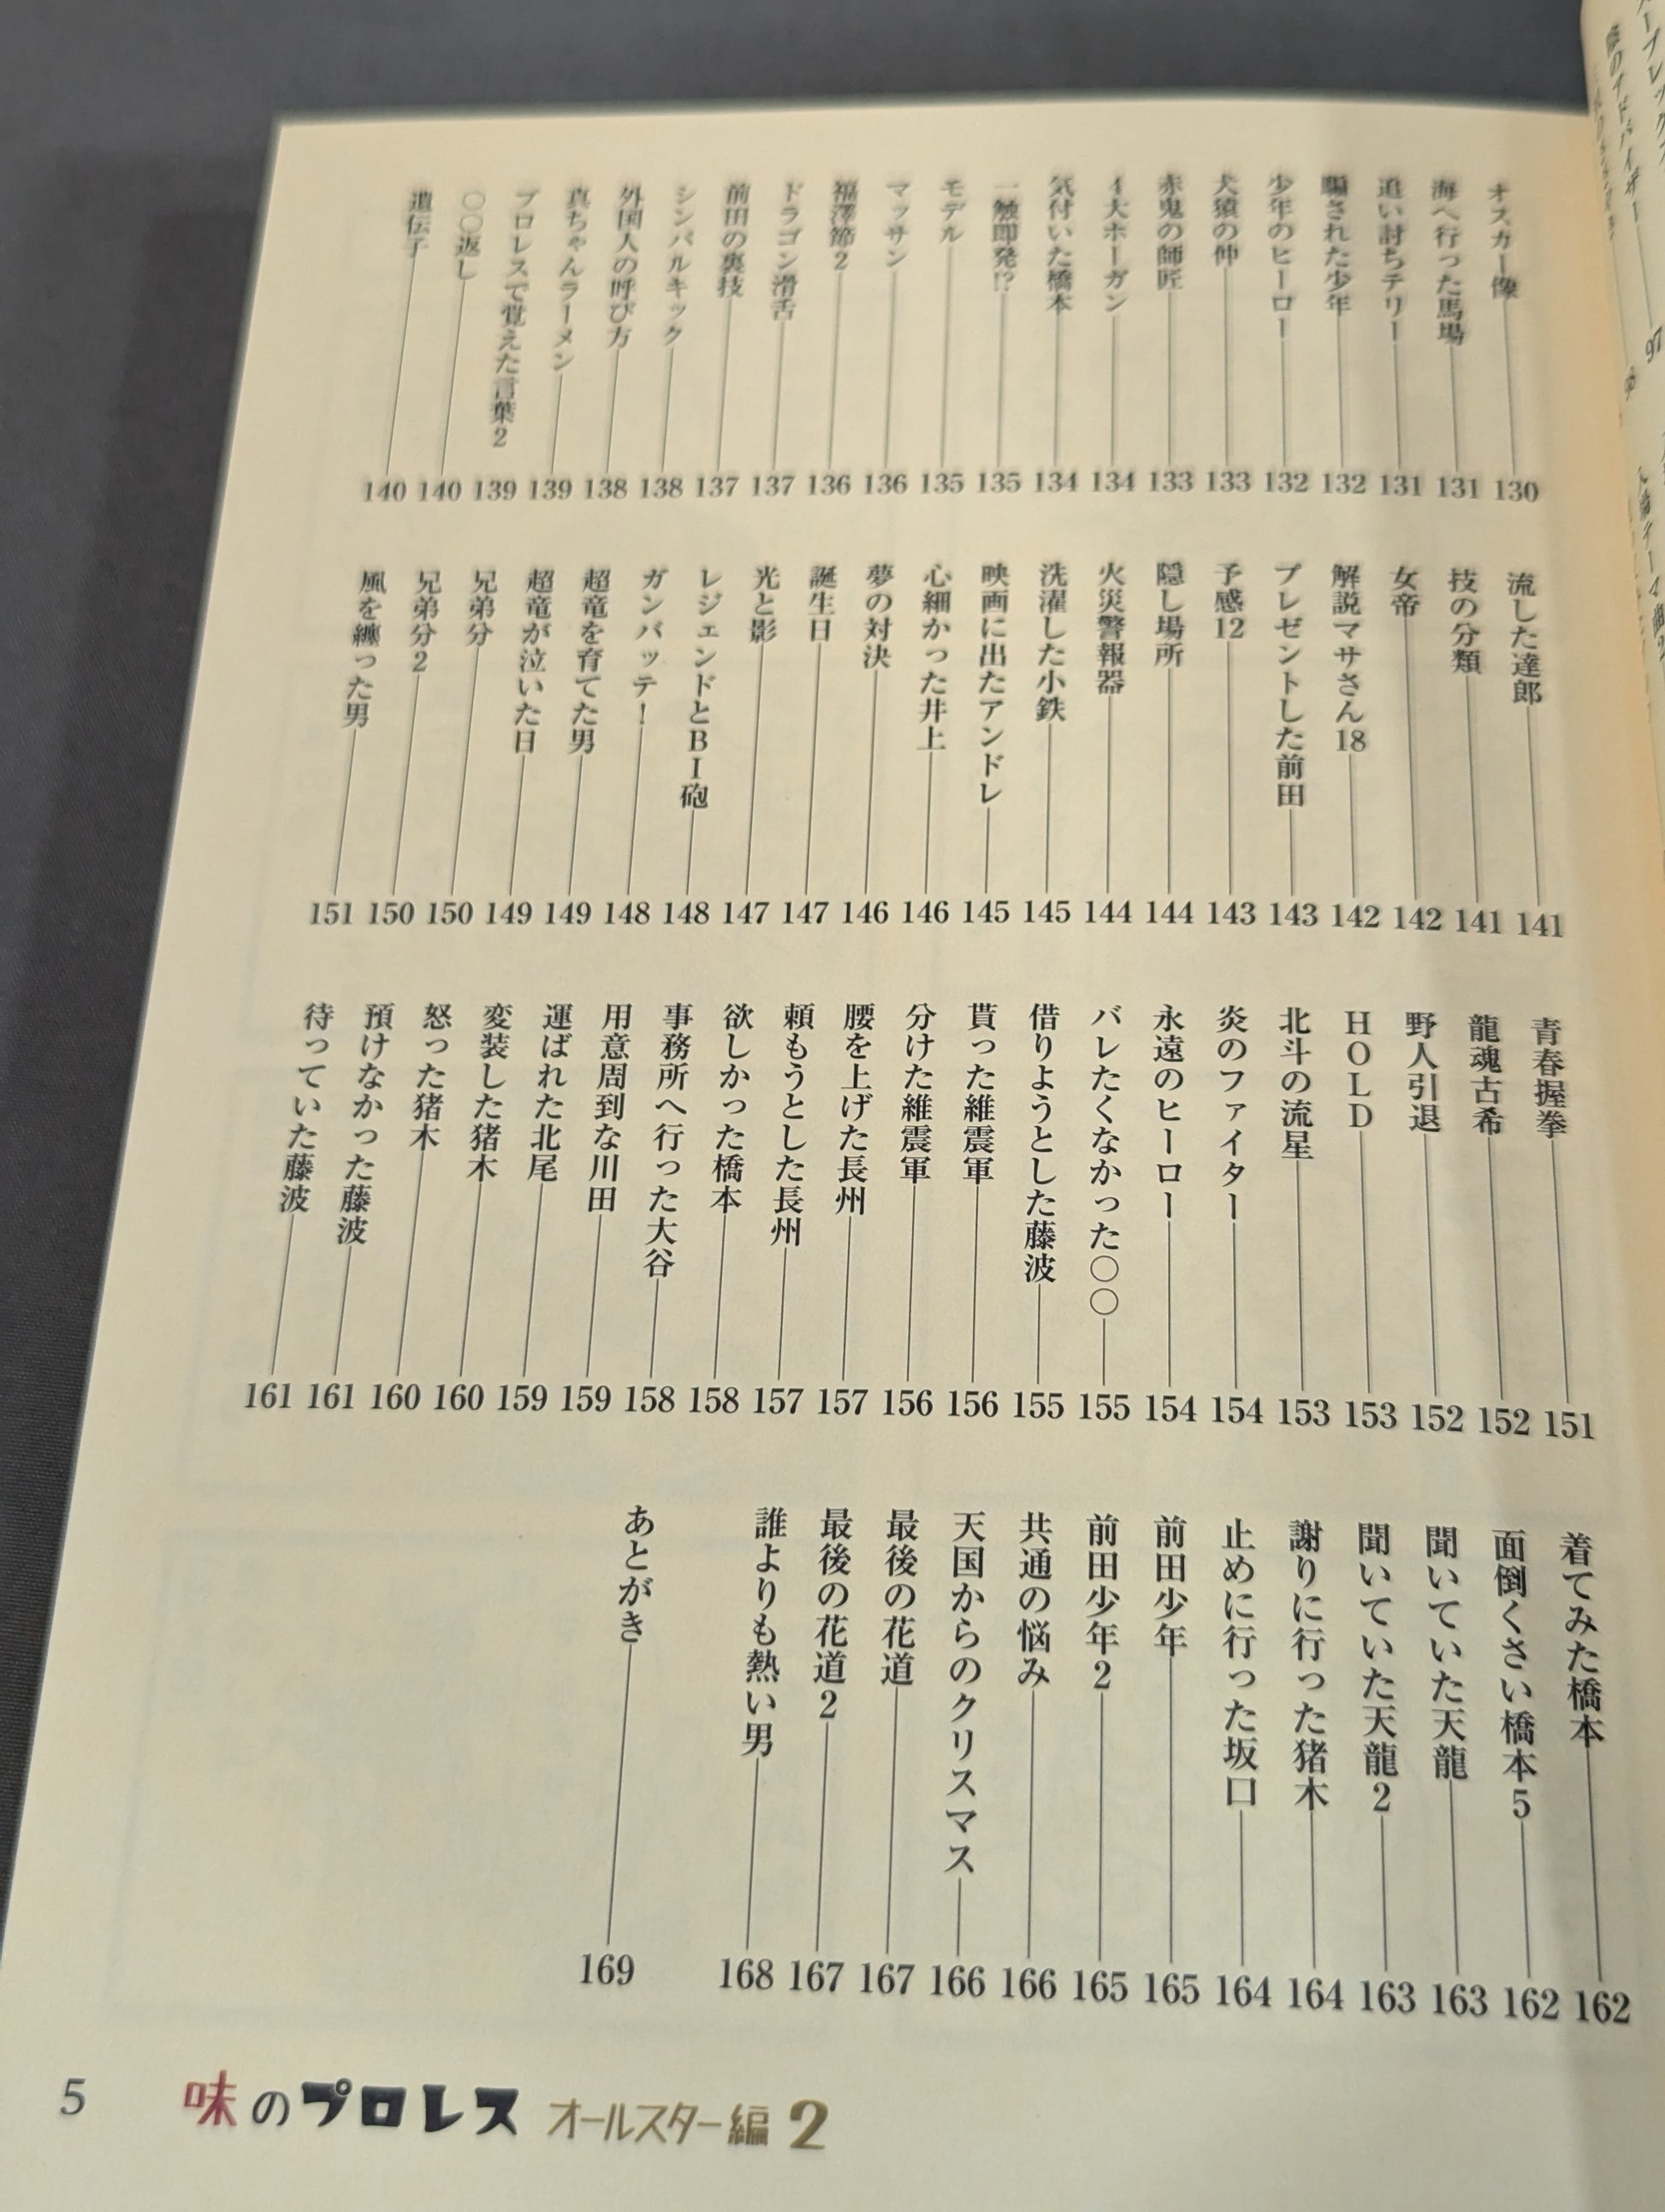 オスカー像 130
海へ行った馬場 131
追い討ちテリー 131
騙された少年 132
少年のヒーロー 132
犬猿の仲 133
赤鬼の師匠 133
イ大ホーガン 134
気付いた橋本 134
一触即発!? 135
モデル 135
マッサン 136
福澤節2 136
ドラゴン滑舌 137
前田の裏技 137
シンバルキック 138
外国人の呼び方 138
真ちゃんラーメン 139
プロレスで覚えた言葉2 139
〇〇返し 140
遺伝子 140
流した達郎 141
技の分類 141
女帝 142
解説マサさん18 142
プレゼントした前田 143
予感12 143
隠し場所 144
火災警報器 144
洗濯した小鉄 145
映画に出たアンドレ 145
心細かった井上 146
夢の対決 146
誕生日 147
光と影 147
レジェンドとBI砲 148
ガンバッテ! 148
超竜を育てた男 149
超竜が泣いた日 149
兄弟分 150
兄弟分2 150
風を纏った男 151
青春握拳 151
龍魂古希 152
野人引退 152
HOLD 153
北斗の流星 153
炎のファイター 154
永遠のヒーロー 154
バレたくなかった〇〇 155
借りようとした藤波 155
貰った維震軍 156
分けた維震軍 156
腰を上げた長州 157
頼もうとした長州 157
欲しかった橋本 158
事務所へ行った大谷 158
用意周到な川田 159
運ばれた北尾 159
変装した猪木 160
怒った猪木 160
預けなかった藤波 161
待っていた藤波 161
着てみた橋本 162
面倒くさい橋本5 162
聞いていた天龍 163
聞いていた天龍2 163
謝りに行った猪木 164
止めに行った坂口 164
前田少年 165
前田少年2 165
共通の悩み 166
天国からのクリスマス 166
最後の花道 167
最後の花道2 167
誰よりも熱い男 168
あとがき 169
5 味のプロレス オールスター編2
97